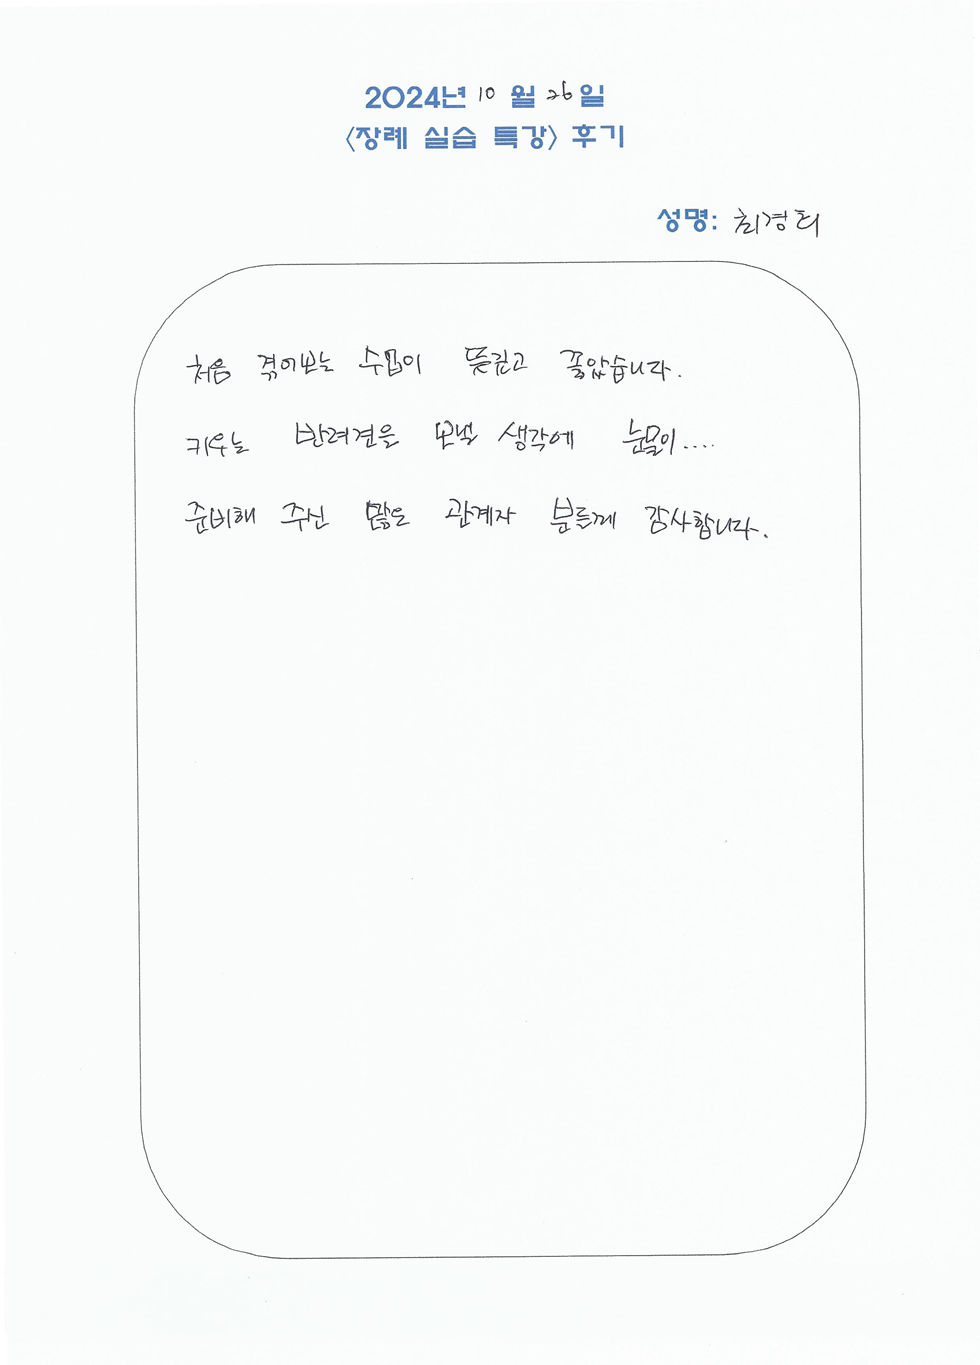 2024년 10월 26일
<장례 실습 특강> 후기
성명: 최경희
처음 겪어보는 수업이 뜻깊고 좋았습니다.
키우는 반려견을 보낼 생각에 눈물이....
준비해 주신 많은 관계자 분들께 감사합니다.